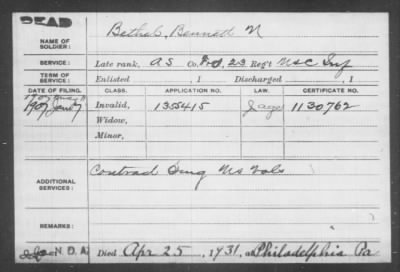 DEAD
NAME OF SOLDIER: Bethel, Bennett N
SERVICE: Late rank, A S Co. 23 Reg't U S C Inf
TERM OF SERVICE: Enlisted , 1 Discharged , 1
DATE OF FILING. CLASS. APPLICATION NO. LAW. CERTIFICATE NO.
1907 Invalid, 1355415 1130762
Widow,
Minor,
ADDITIONAL SERVICES: Contract Surg Vols
REMARKS:
N.D.A. Died Apr 25, 1931, at Philadelphia Pa